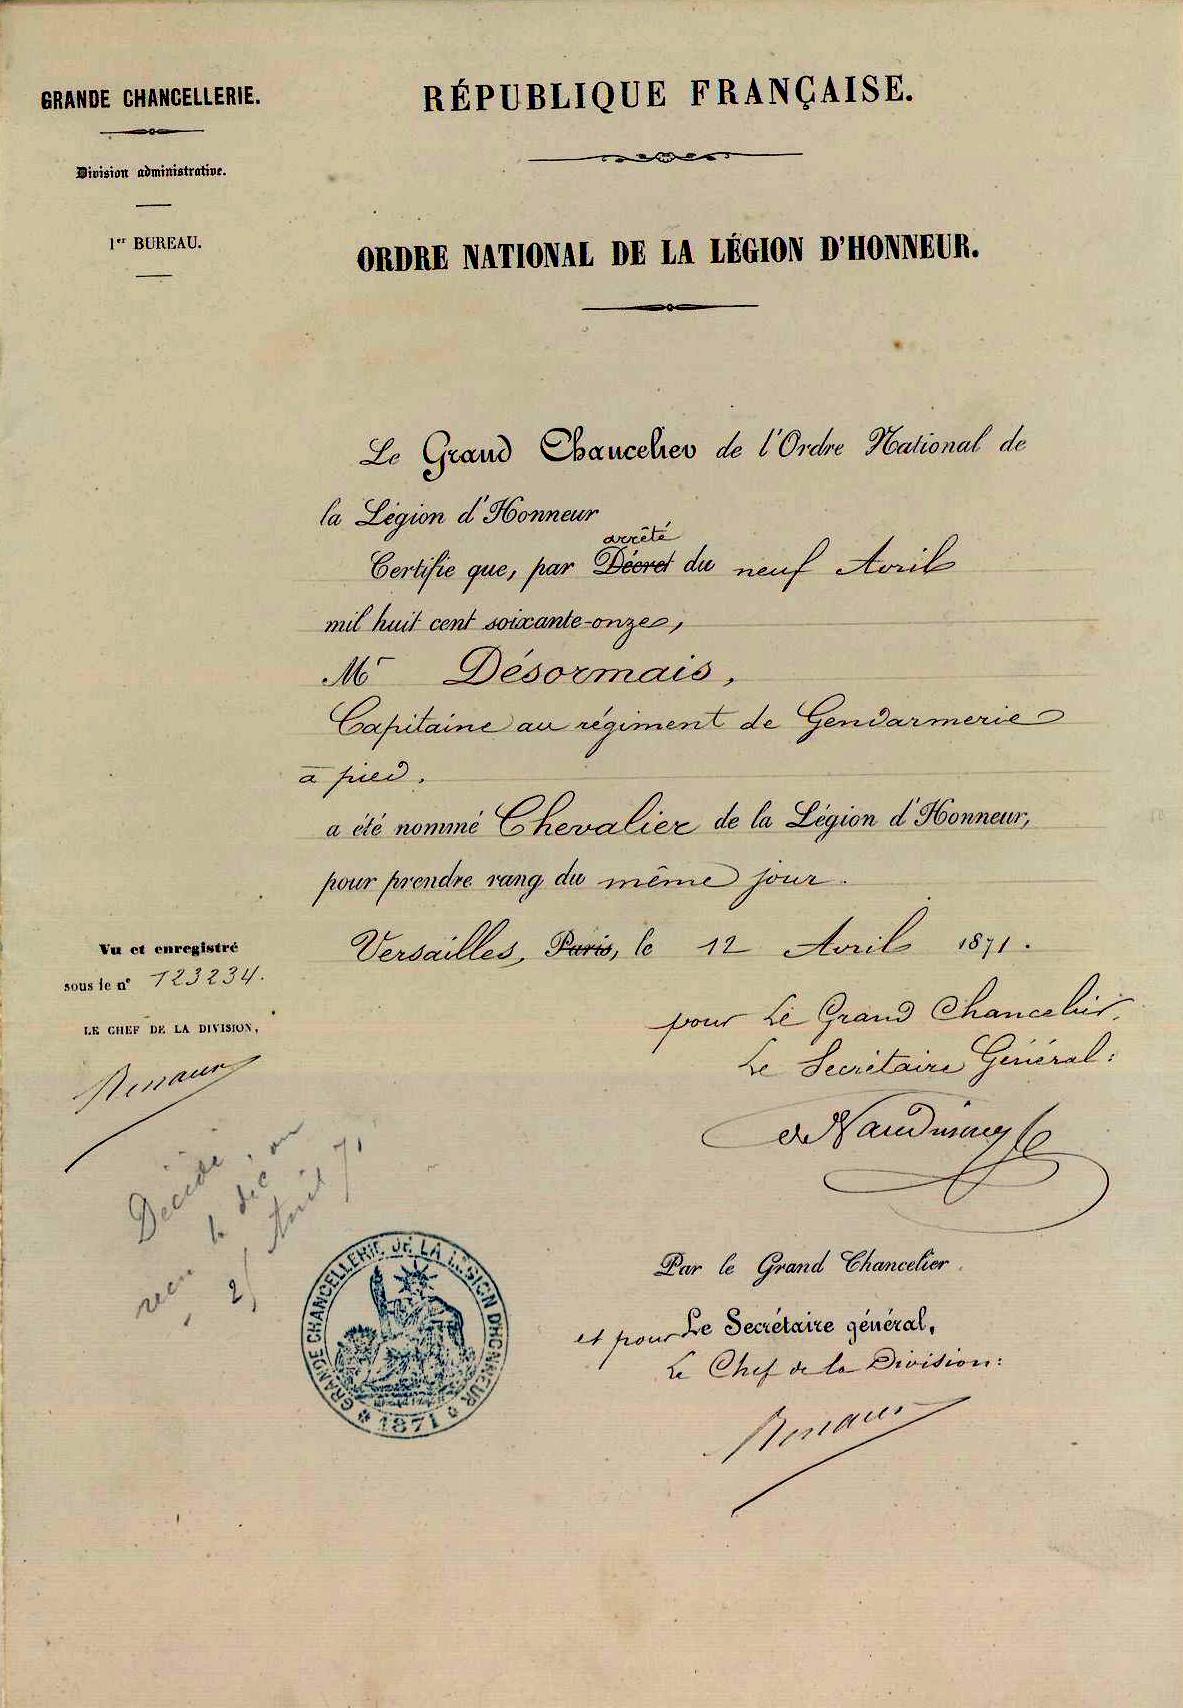 GRANDE CHANCELLERIE.
Division administrative.
1er BUREAU.
RÉPUBLIQUE FRANÇAISE.
ORDRE NATIONAL DE LA LÉGION D'HONNEUR.
Le Grand Chancelier de l'Ordre National de
la Légion d'Honneur
arrêté
Certifie que, par Décret du neuf Avril
mil huit cent soixante-onze,
Mr Désormais,
Capitaine au régiment de Gendarmerie
à pied.
a été nommé Chevalier de la Légion d'Honneur,
pour prendre rang du même jour.
Versailles, Paris, le 12 Avril 1871.
pour Le Grand Chancelier,
Le Secrétaire Général:
Vu et enregistré
sous le n° 123234.
LE CHEF DE LA DIVISION,
Décédé
Avril 71
GRANDE CHANCELLERIE DE LA LÉGION D'HONNEUR
1871
Par le Grand Chancelier.
et pour Le Secrétaire général,
Le Chef de la Division: